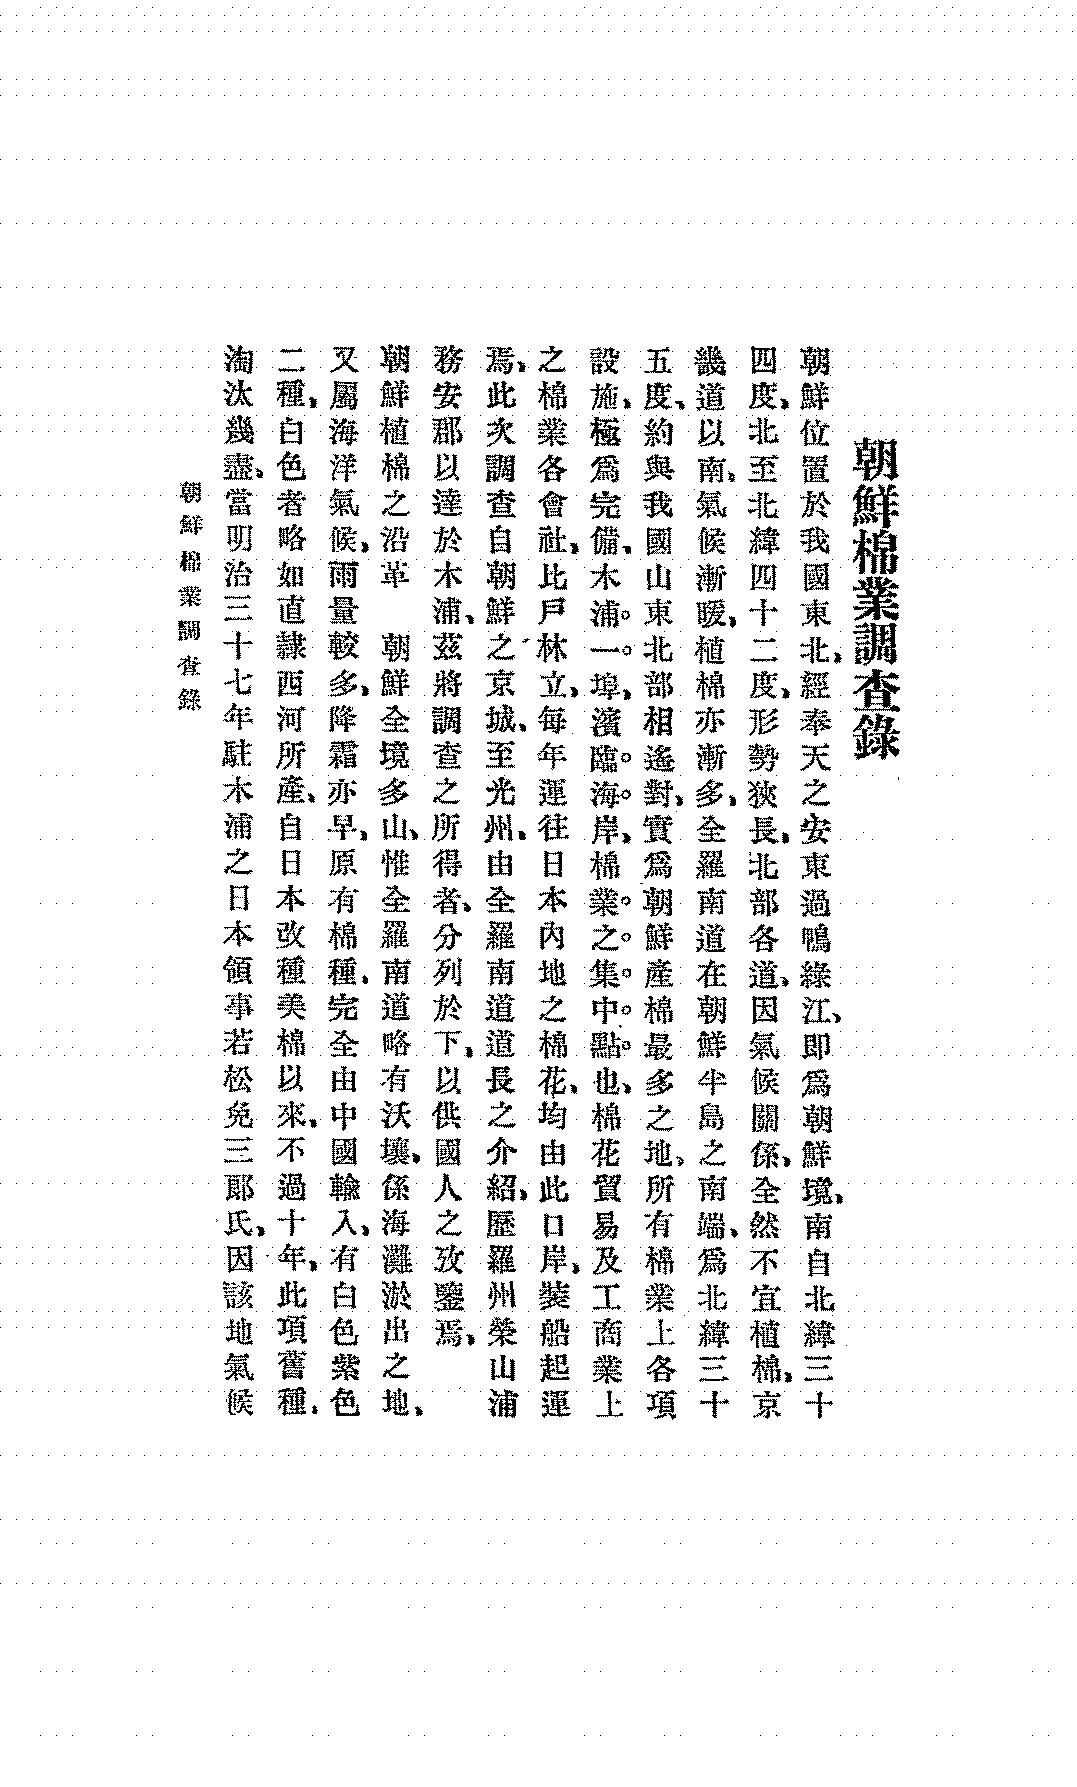 朝鮮棉業調查錄
朝鮮位置於我國東北、經奉天之安東過鴨綠江、即爲朝鮮境、南自北緯三十
四度、北至北緯四十二度、形勢狹長、北部各道、因氣候關係、全然不宜植棉、京
畿道以南、氣候漸暖、植棉亦漸多、全羅南道在朝鮮半島之南端、爲北緯三十
五度、約與我國山東北部相遙對、實爲朝鮮產棉最多之地、所有棉業上各項
設施、極爲完備、木浦。一。埠、濱臨。海。岸、棉業。之。集。中。點。也、棉花貿易及工商業上
之棉業各會社、比戶林立、每年運往日本內地之棉花、均由此口岸、裝船起運
焉、此次調查自朝鮮之京城、至光州、由全羅南道道長之介紹、歷羅州榮山浦
務安郡以達於木浦、茲將調查之所得者、分列於下、以供國人之攷鑒焉、
朝鮮植棉之沿革　朝鮮全境多山、惟全羅南道略有沃壤、係海灘淤出之地、
又屬海洋氣候、雨量較多、降霜亦早、原有棉種、完全由中國輸入、有白色紫色
二種、白色者略如直隸西河所產、自日本改種美棉以來、不過十年、此項舊種、
淘汰幾盡、當明治三十七年駐木浦之日本領事若松兔三郎氏、因該地氣候
朝鮮棉業調查錄